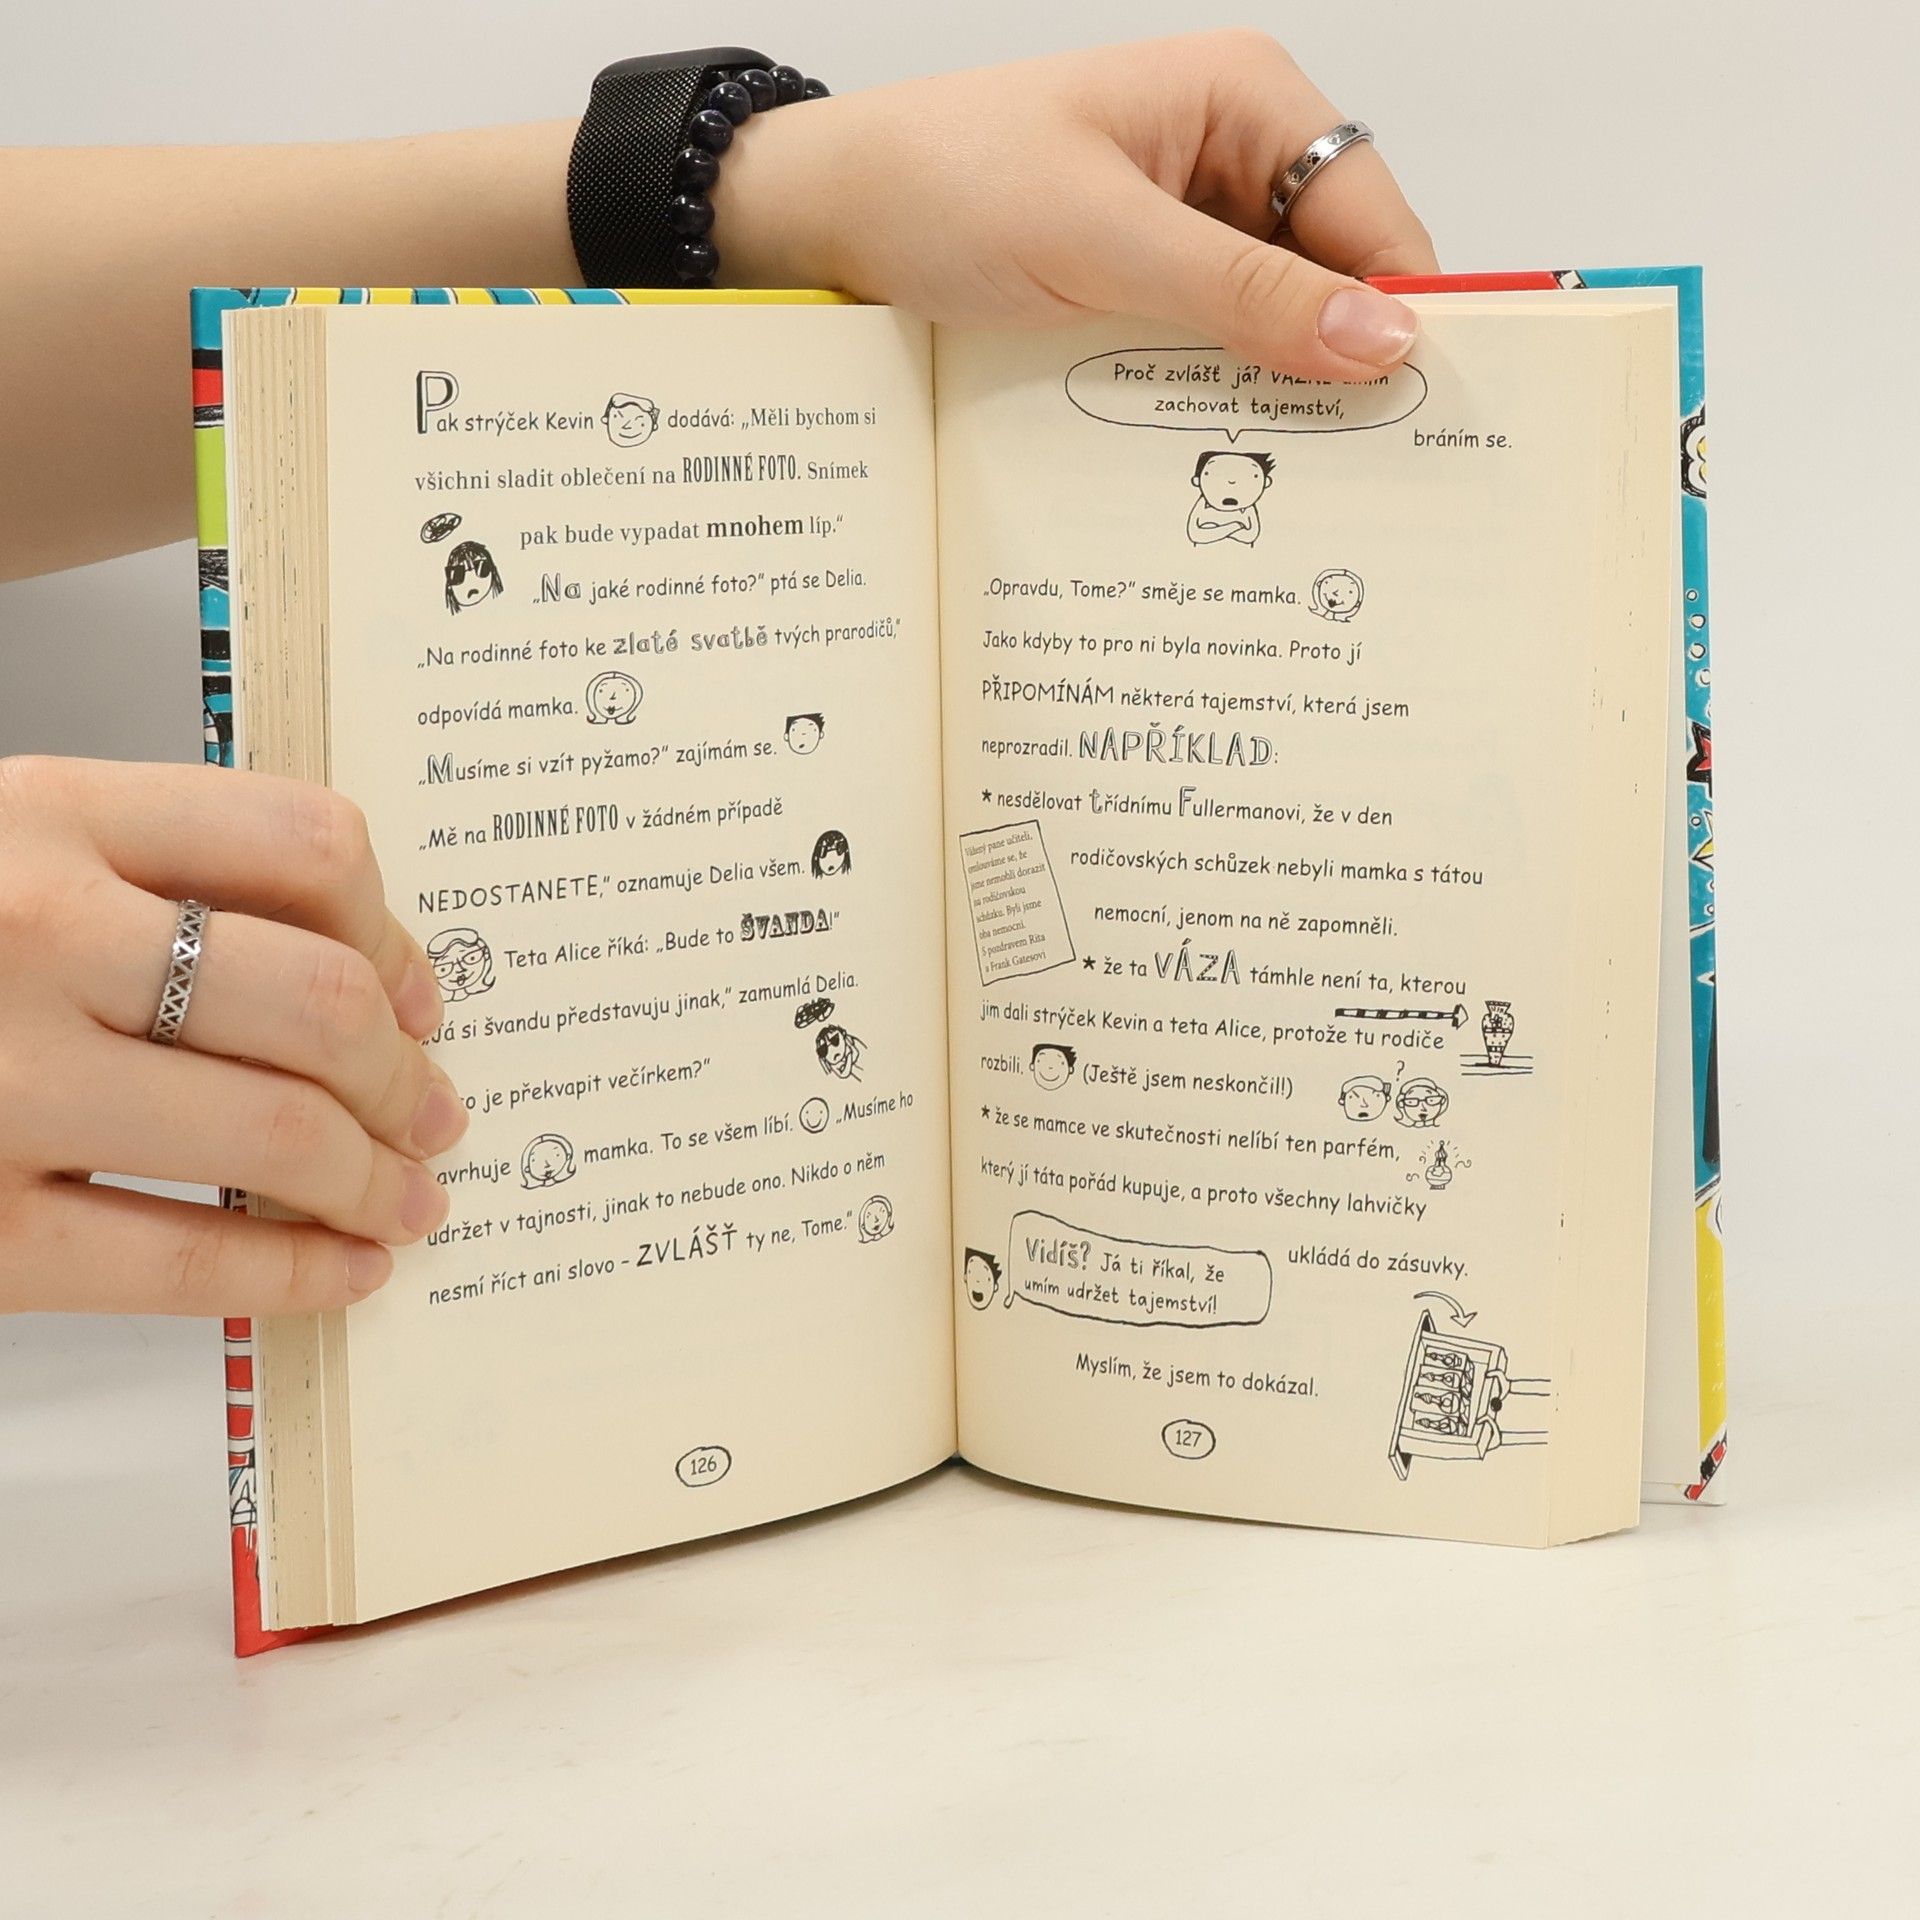 Pak strýček Kevin dodává: „Měli bychom si
všichni sladit oblečení na RODINNÉ FOTO. Snímek
pak bude vypadat mnohem líp.“
„Na jaké rodinné foto?“ ptá se Delia.
„Na rodinné foto ke zlaté svatbě tvých prarodičů,“
odpovídá mamka.
„Musíme si vzít pyžamo?“ zajímám se.
„Mě na RODINNÉ FOTO v žádném případě
NEDOSTANETE,“ oznamuje Delia všem.
Teta Alice říká: „Bude to ŠVANDA!“
„Já si švandu představuju jinak,“ zamumlá Delia.
je překvapit večírkem?“
mamka. To se všem líbí. „Musíme ho
udržet v tajnosti, jinak to nebude ono. Nikdo o něm
nesmí říct ani slovo – ZVLÁŠŤ ty ne, Tome.“
126
Proč zvlášť já?
zachovat tajemství,
bráním se.
„Opravdu, Tome?“ směje se mamka.
Jako kdyby to pro ni byla novinka. Proto jí
PŘIPOMÍNÁM některá tajemství, která jsem
neprozradil. NAPŘÍKLAD:
* nesdělovat třídnímu Fullermanovi, že v den
rodičovských schůzek nebyli mamka s tátou
nemocní, jenom na ně zapomněli.
Vážený pane učiteli,
omlouváme se, že
jsme nemohli dorazit
na rodičovskou
schůzku. Byli jsme
oba nemocní.
S pozdravem Rita
a Frank Gatesovi
* že ta VÁZA támhle není ta, kterou
jim dali strýček Kevin a teta Alice, protože tu rodiče
rozbili. (Ještě jsem neskončil!)
?
* že se mamce ve skutečnosti nelíbí ten parfém,
který jí táta pořád kupuje, a proto všechny lahvičky
ukládá do zásuvky.
Vidíš? Já ti říkal, že
umím udržet tajemství!
Myslím, že jsem to dokázal.
127